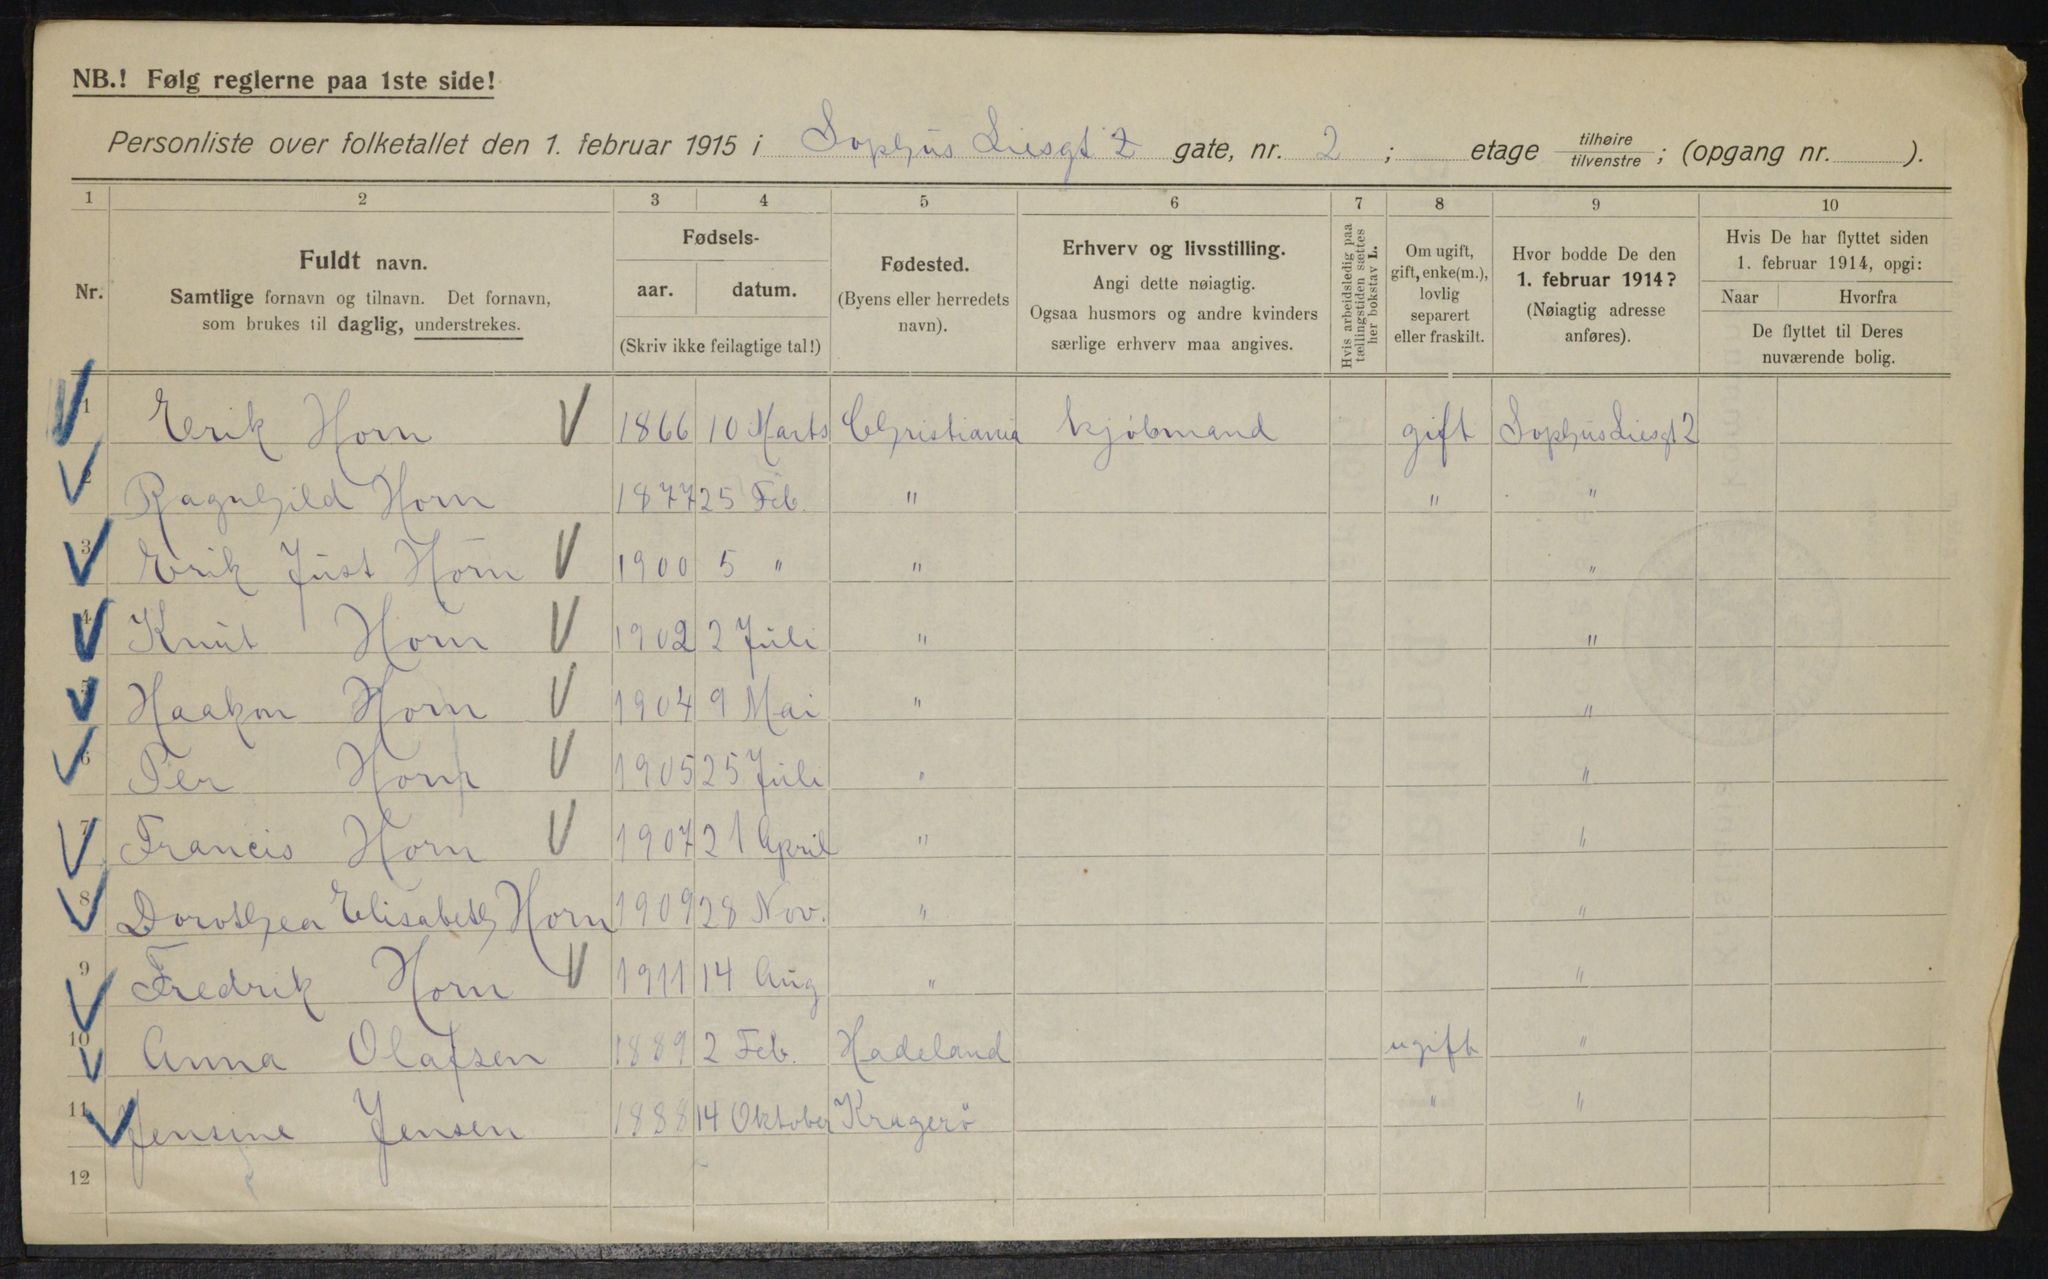 NB.! Følg reglerne paa 1ste side!
Personliste over folketallet den 1. februar 1915 i Sophus Liesgt 2 gate, nr. 2 ; etage tilhøire tilvenstre ; (opgang nr. ).
1 2 3 4 5 6 7 8 9 10
Nr.
Fuldt navn.
Samtlige fornavn og tilnavn. Det fornavn,
som brukes til daglig, understrekes.
Fødsels-
aar. datum.
(Skriv ikke feilagtige tal!)
Fødested.
(Byens eller herredets
navn).
Erhverv og livsstilling.
Angi dette nøiagtig.
Ogsaa husmors og andre kvinders
særlige erhverv maa angives.
Hvis arbeidsledig paa
tællingstiden sættes
her bokstav L.
Om ugift,
gift, enke(m.),
lovlig
separert
eller fraskilt.
Hvor bodde De den
1. februar 1914?
(Nøiagtig adresse
anføres).
Hvis De har flyttet siden
1. februar 1914, opgi:
Naar Hvorfra
De flyttet til Deres
nuværende bolig.
1 Erik Horn V 1866 10 Marts Christiania kjöbmand gift Sophus Liesgt 2
2 Ragnhild Horn 1877 25 Feb. " " "
3 Erik Just Horn V 1900 5 " " "
4 Knut Horn V 1902 2 Juli " "
5 Haakon Horn V 1904 9 Mai " "
6 Per Horn V 1905 25 Juli " "
7 Francis Horn V 1907 21 April " "
8 Dorothea Elisabeth Horn 1909 28 Nov. " "
9 Fredrik Horn V 1911 14 Aug " "
10 Anna Olafsen 1889 2 Feb. Hadeland ugift "
11 Jensine Jensen 1888 14 Oktober Kragerö " "
12